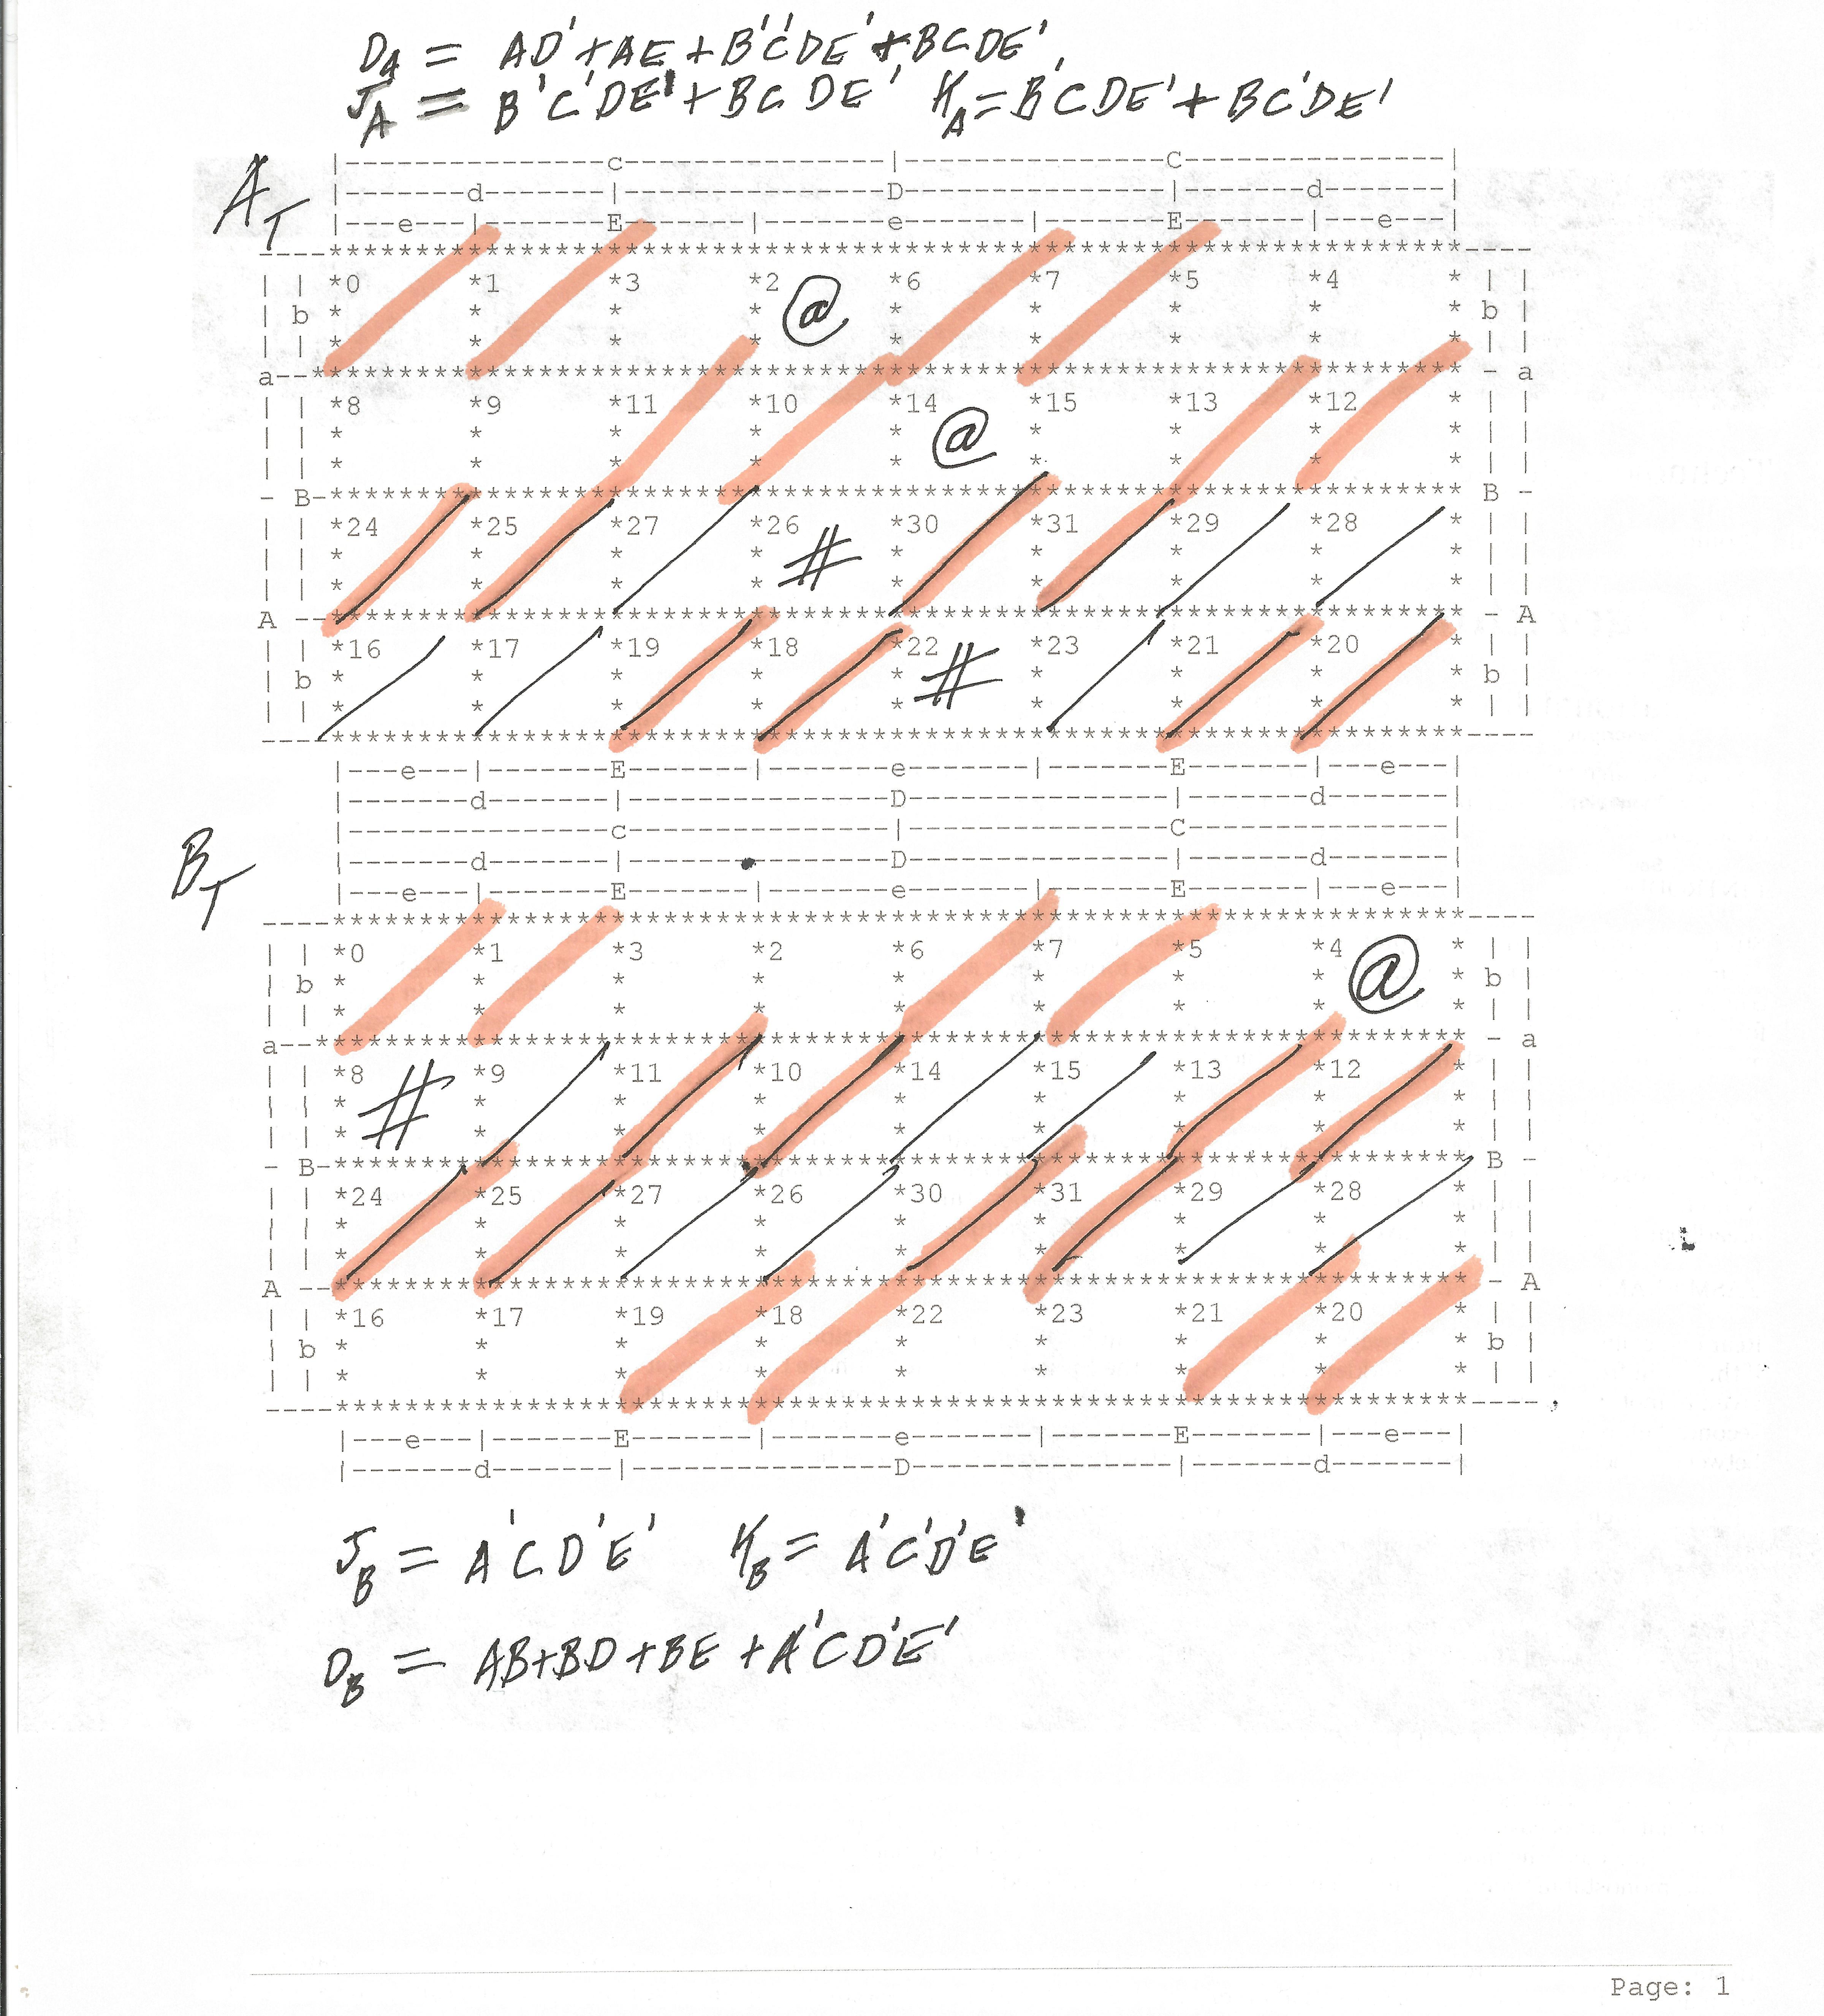 D_A = AD' + AE + B'C'DE' + BCDE'
J_A = B'C'DE' + BCDE' K_A = B'CDE' + BC'DE'
A_T
|---------------c---------------|---------------C---------------|
|-------d-------|---------------D---------------|-------d-------|
|---e---|-------E-------|-------e-------|-------E-------|---e---|
----*****************************************************************----
| | *0 *1 *3 *2 @ *6 *7 *5 *4 * | |
| b * * * * * * * * * b |
| | * * * * * * * * * | |
a--***************************************************************** - a
| | *8 *9 *11 *10 *14 @ *15 *13 *12 * | |
| | * * * * * * * * * | |
| | * * * * * * * * * | |
- B-***************************************************************** B -
| | *24 *25 *27 *26 # *30 *31 *29 *28 * | |
| | * * * * * * * * * | |
| | * * * * * * * * * | |
A --***************************************************************** - A
| | *16 *17 *19 *18 *22 # *23 *21 *20 * | |
| b * * * * * * * * * b |
| | * * * * * * * * * | |
----*****************************************************************----
|---e---|-------E-------|-------e-------|-------E-------|---e---|
|-------d-------|---------------D---------------|-------d-------|
B_T
|---------------c---------------|---------------C---------------|
|-------d-------|---------------D---------------|-------d-------|
|---e---|-------E-------|-------e-------|-------E-------|---e---|
----*****************************************************************----
| | *0 *1 *3 *2 *6 *7 *5 *4 @ * | |
| b * * * * * * * * * b |
| | * * * * * * * * * | |
a--***************************************************************** - a
| | *8 # *9 *11 *10 *14 *15 *13 *12 * | |
| | * * * * * * * * * | |
| | * * * * * * * * * | |
- B-***************************************************************** B -
| | *24 *25 *27 *26 *30 *31 *29 *28 * | |
| | * * * * * * * * * | |
| | * * * * * * * * * | |
A --***************************************************************** - A
| | *16 *17 *19 *18 *22 *23 *21 *20 * | |
| b * * * * * * * * * b |
| | * * * * * * * * * | |
----*****************************************************************----
|---e---|-------E-------|-------e-------|-------E-------|---e---|
|-------d-------|---------------D---------------|-------d-------|
J_B = A'CD'E' K_B = A'C'D'E'
D_B = AB+BD+BE+A'CD'E'
Page: 1